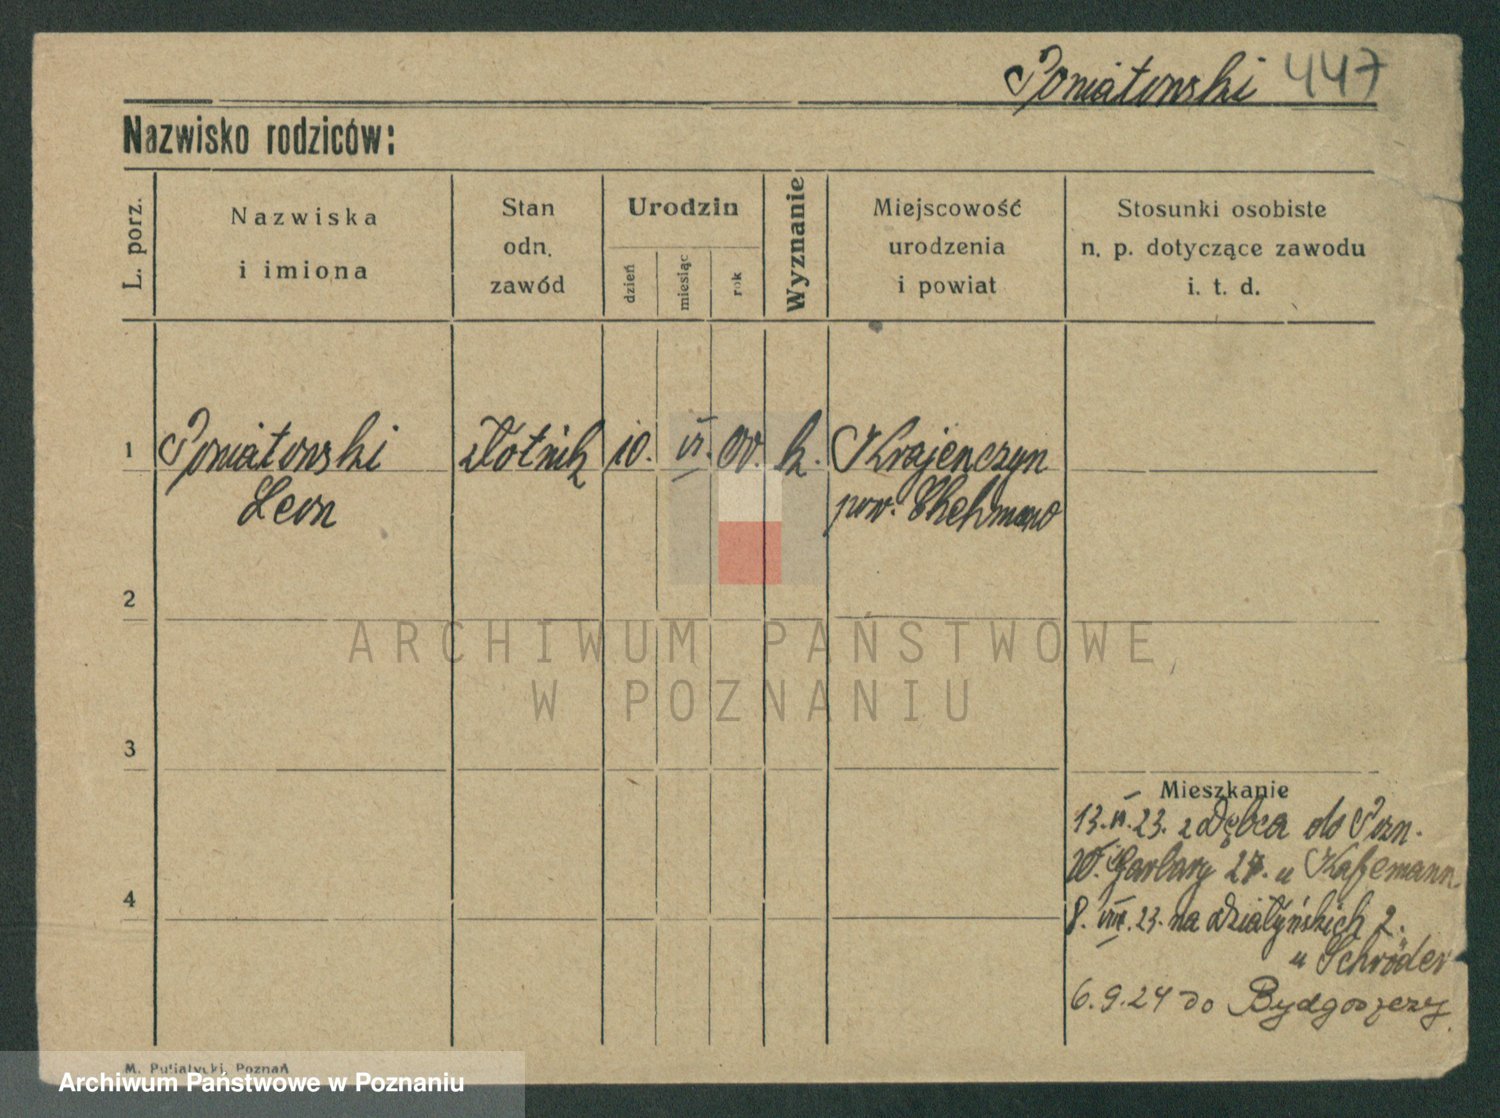 Poniatowski 447
Nazwisko rodziców:
L. porz.
Nazwiska
i imiona
Stan
odn.
zawód
Urodzin
dzień
miesiąc
rok
Wyznanie
Miejscowość
urodzenia
i powiat
Stosunki osobiste
n. p. dotyczące zawodu
i. t. d.
1 Poniatowski złotnik 10. VI. 00. k. Krajenczyn
Leon pow. Chełmno
2
3
4
Mieszkanie
13. VI. 23. z Dębca do Pozn.
W. Garbary 27. u Kafemann.
8. VIII. 23. na Działyńskich 2.
u Schröder
6.9.24 do Bydgoszczy.
M. Putiatycki, Poznań
ARCHIWUM PAŃSTWOWE
W POZNANIU
Archiwum Państwowe w Poznaniu